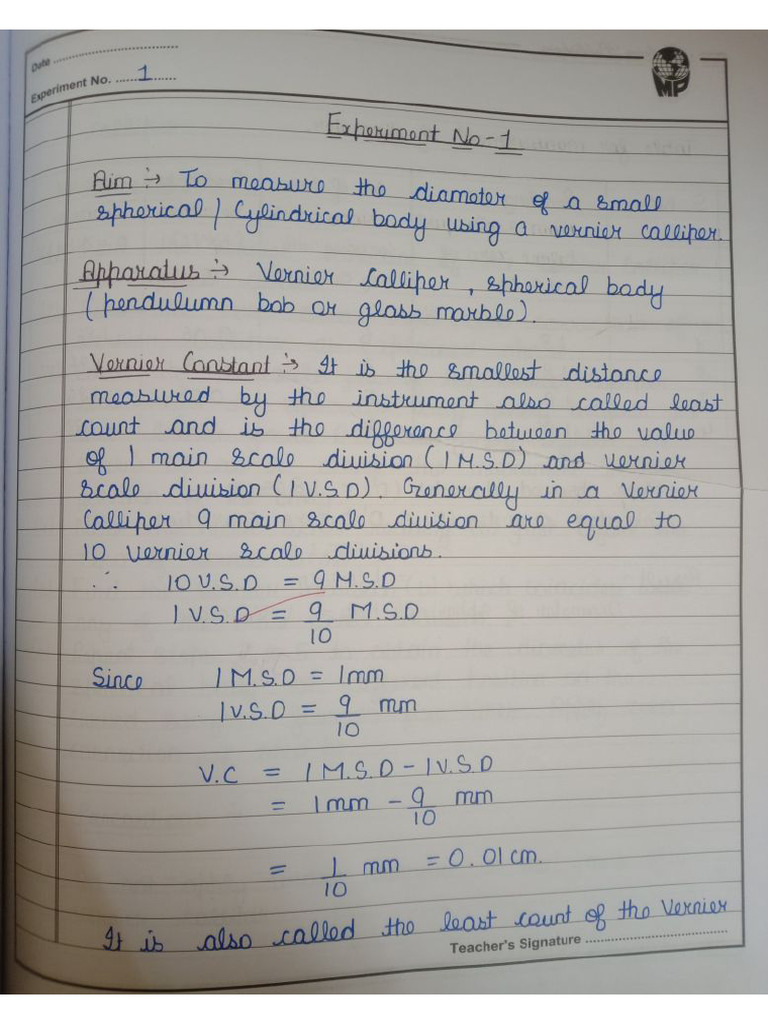 Date ..............................
Experiment No. ......1......
MP
Experiment No-1
Aim :→ To measure the diameter of a small
spherical / Cylindrical body using a vernier calliper.
Apparatus :→ Vernier Calliper, spherical body
(pendulumn bob or glass marble).
Vernier Constant :→ It is the smallest distance
measured by the instrument also called least
count and is the difference between the value
of 1 main scale division (1 M.S.D) and vernier
scale division (1 V.S.D). Generally in a Vernier
Calliper 9 main scale division are equal to
10 vernier scale divisions.
∴ 10 V.S.D = 9 M.S.D
1 V.S.D = 9/10 M.S.D
Since 1 M.S.D = 1mm
1 V.S.D = 9/10 mm
V.C = 1 M.S.D - 1 V.S.D
= 1mm - 9/10 mm
= 1/10 mm = 0.01 cm.
It is also called the least count of the Vernier
Teacher's Signature ..............................